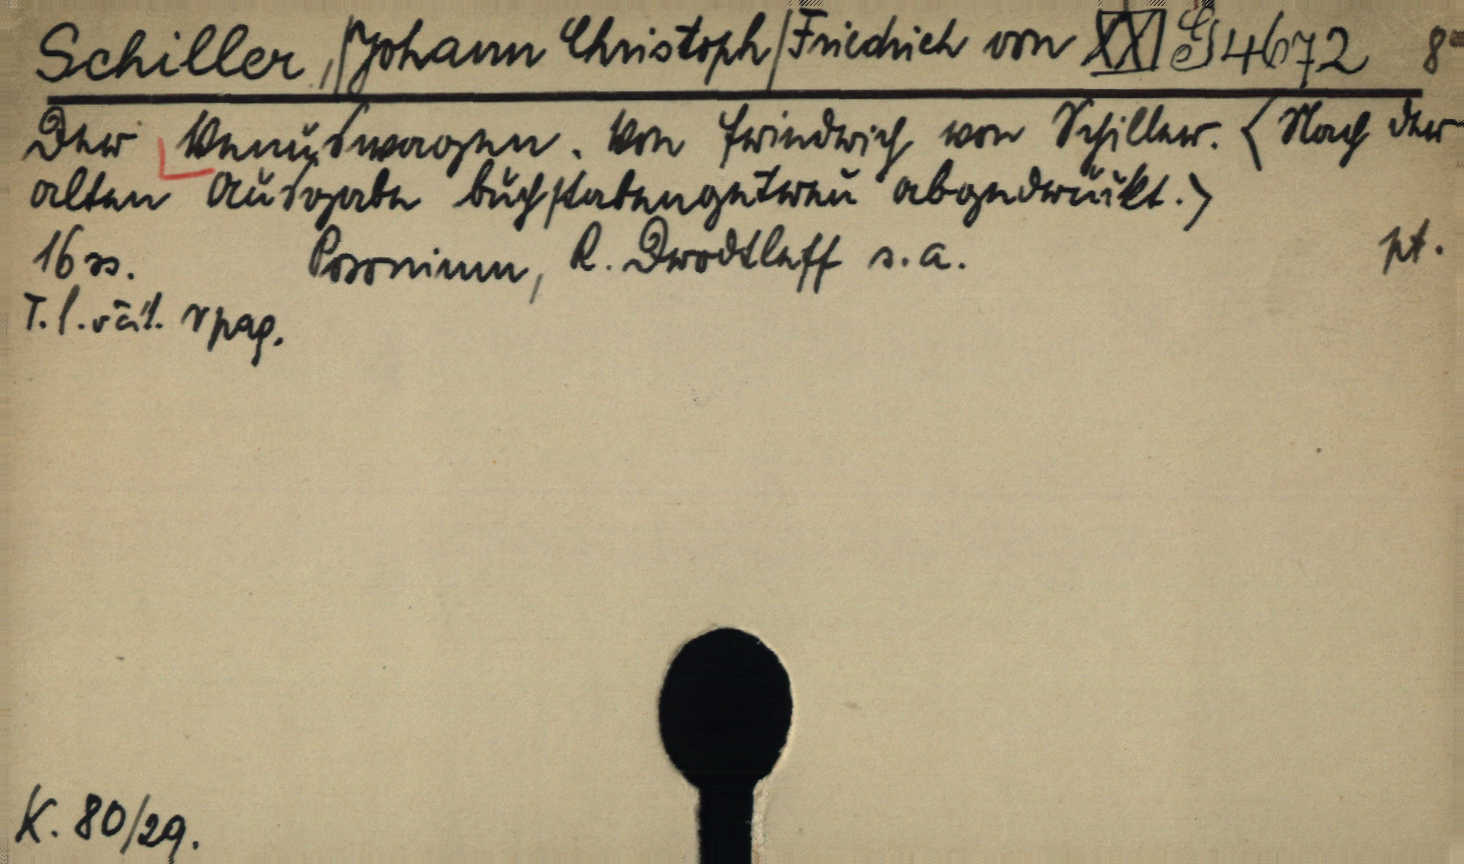 Schiller, /Johann Christoph/ Friedrich von XXI G 4672 8°
Der Venuswagen. Von Friedrich von Schiller. <Nach der
alten Ausgabe buchstabengetreu abgedruckt.>
16 ss. Posonium, R. Drodtleff s.a. pt.
T. l. vält. r pag.
K. 80/29.